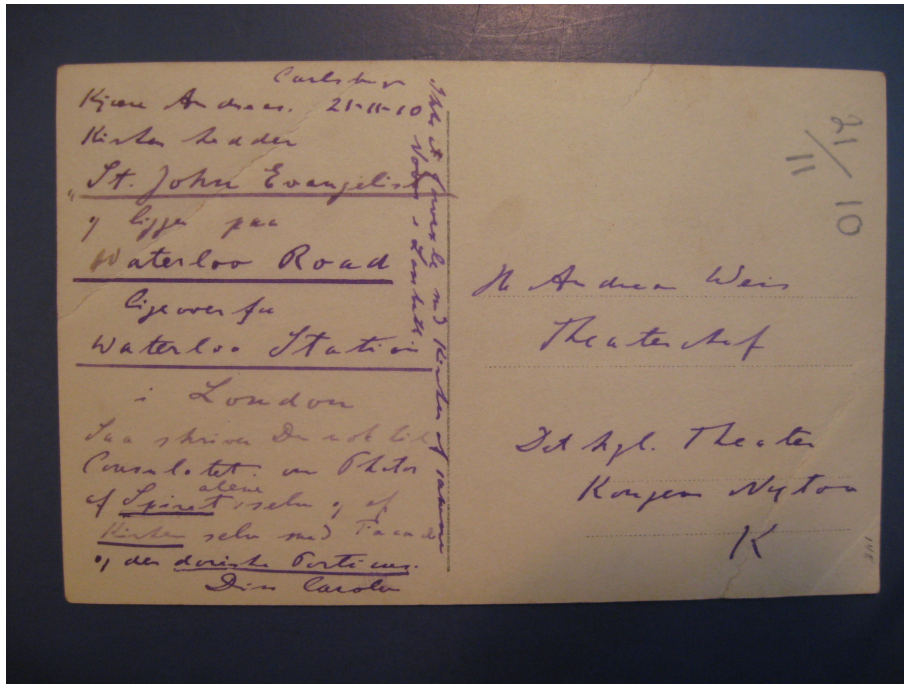 Carlsberg
Kjære Andreas. 21-11-10
Kirken hedder
„St. John Evangelist
og ligger paa
Waterloo Road
ligeoverfor
Waterloo Station
i London
Saa skriver Du nok til
Consulatet. om Photos
alene
af Spiret selv og af
Kirken selv med Facade
og den doriske Porticus.
Din Carl
Ikke at forvexle med Kirken af samme
Navn i Lambeth.
21/11 10
Hr Andreas Weis
Theaterchef
Det kgl. Theater
Kongens Nytorv
K